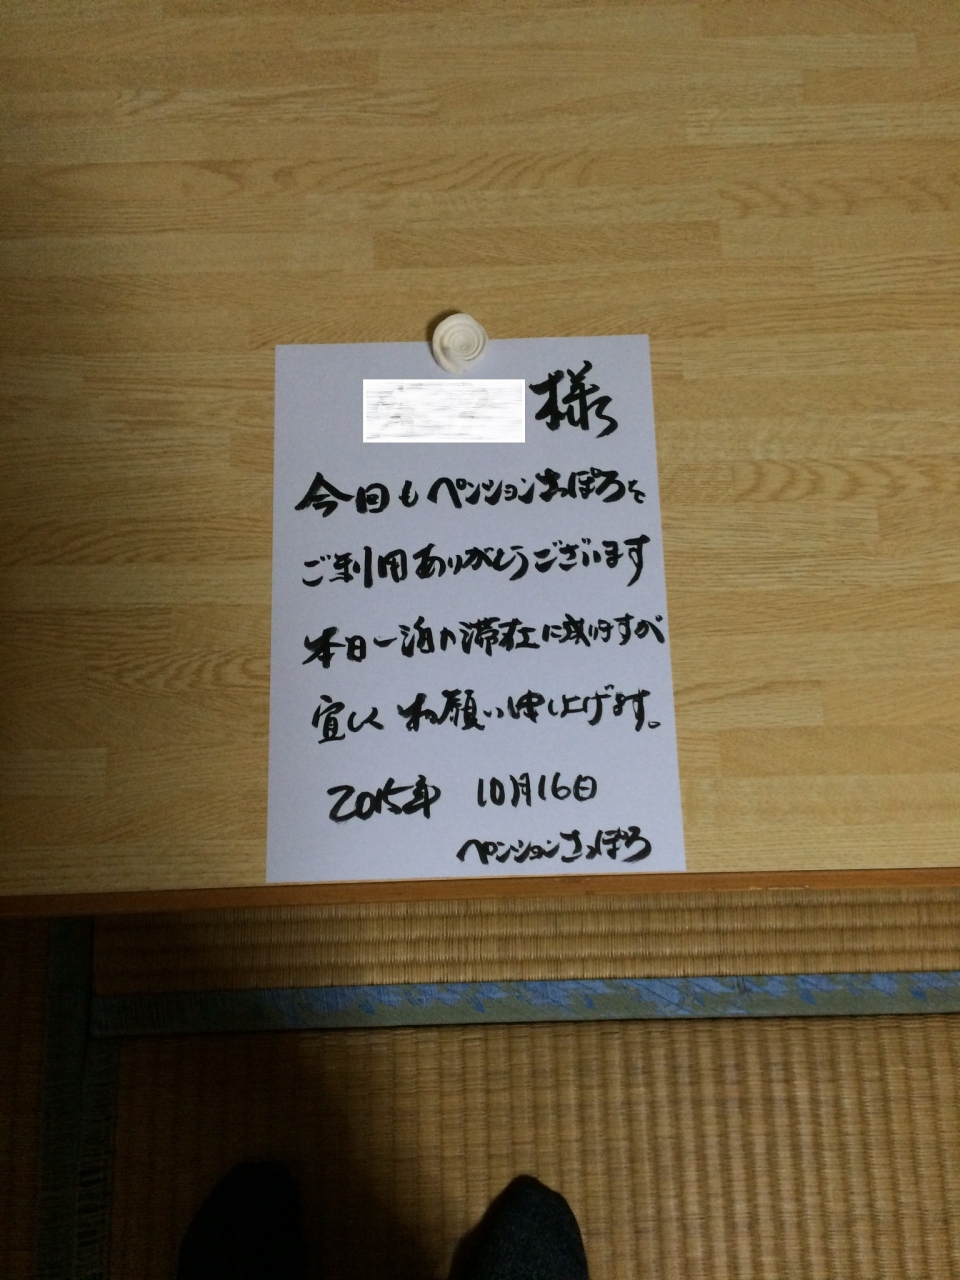 様
今回もペンションさっぽろを
ご利用ありがとうございます
本日一泊の滞在に成りますが
宜しくお願い申し上げます。
2015年 10月16日
ペンションさっぽろ